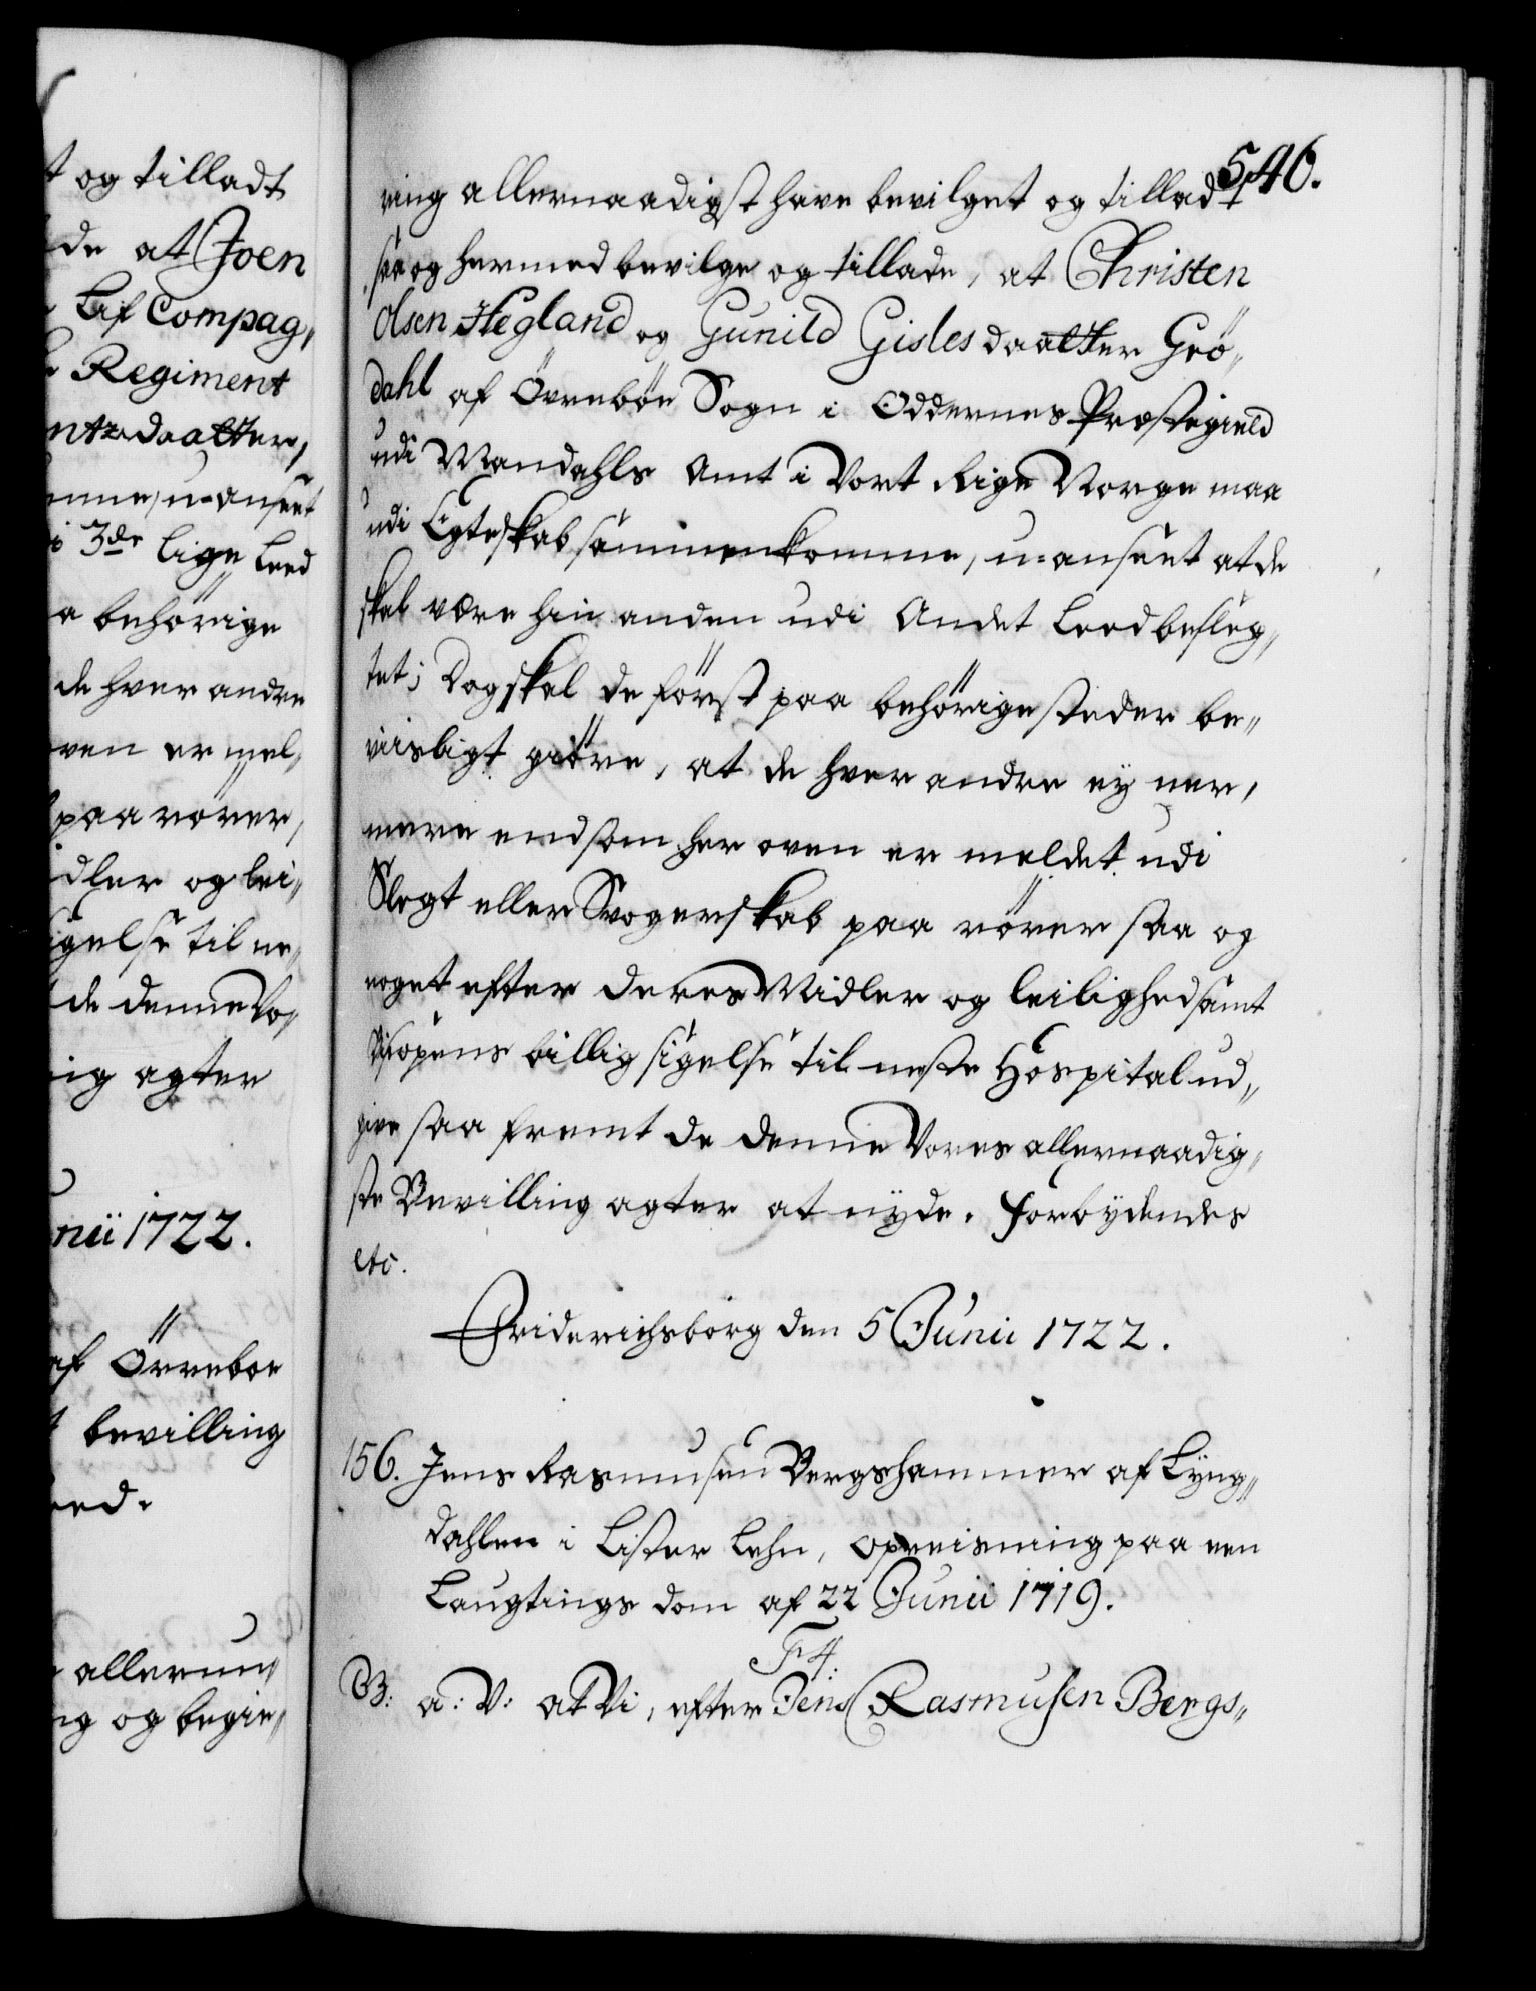 t og tilladt
de at Joen
Lif Compag,
Regiment
ntzdaatter,
mme, u-anseet
i 3de lige Leed
a behörige
de hver andre
oven er mel,
paa rörer,
dler og lei,,
igelse til ne,,
de denne Vo,,
ig agter
nii 1722.
af Övreboe
bevilling
eed.
allerun,,
ng og begie,,
546.
ring allernaadigst have bevilget og tilladt
saa og hermed bevilge og tillade, at Christen
Olsen Hegland og Gunild Gislesdaatter Grö,,
dahl af Övreböe Sogn i Oddernes Præstegield
udi Mandahls Amt i Vort Rige Norge maa
udi Egteskab sammenkomme, u-anseet at de
skal være hin anden udi Andet Leed beslæg,,
tet; Dog skal de först paa behörige steder be,,
viisligt giöre, at de hver andre ey nær,
mere end som her oven er meldet udi
Slegt eller Svogerskab paa rörer saa og
noget efter deres Midler og leilighed samt
Bispens billig sigelse til neste Hospital ud,,
give saa fremt de denne Vores allernaadig,,
ste Bevilling agter at nyde. Forbydendes
etc.
Friderichsborg den 5 Junii 1722.
156. Jens Rasmusen Bergshammer af Lyng,,
dahlen i Lister Lehn, Opreisning paa een
Laugtings dom af 22 Junii 1719.
F4:
B: a: V: at Vi, efter Jens Rasmusen Bergs,,